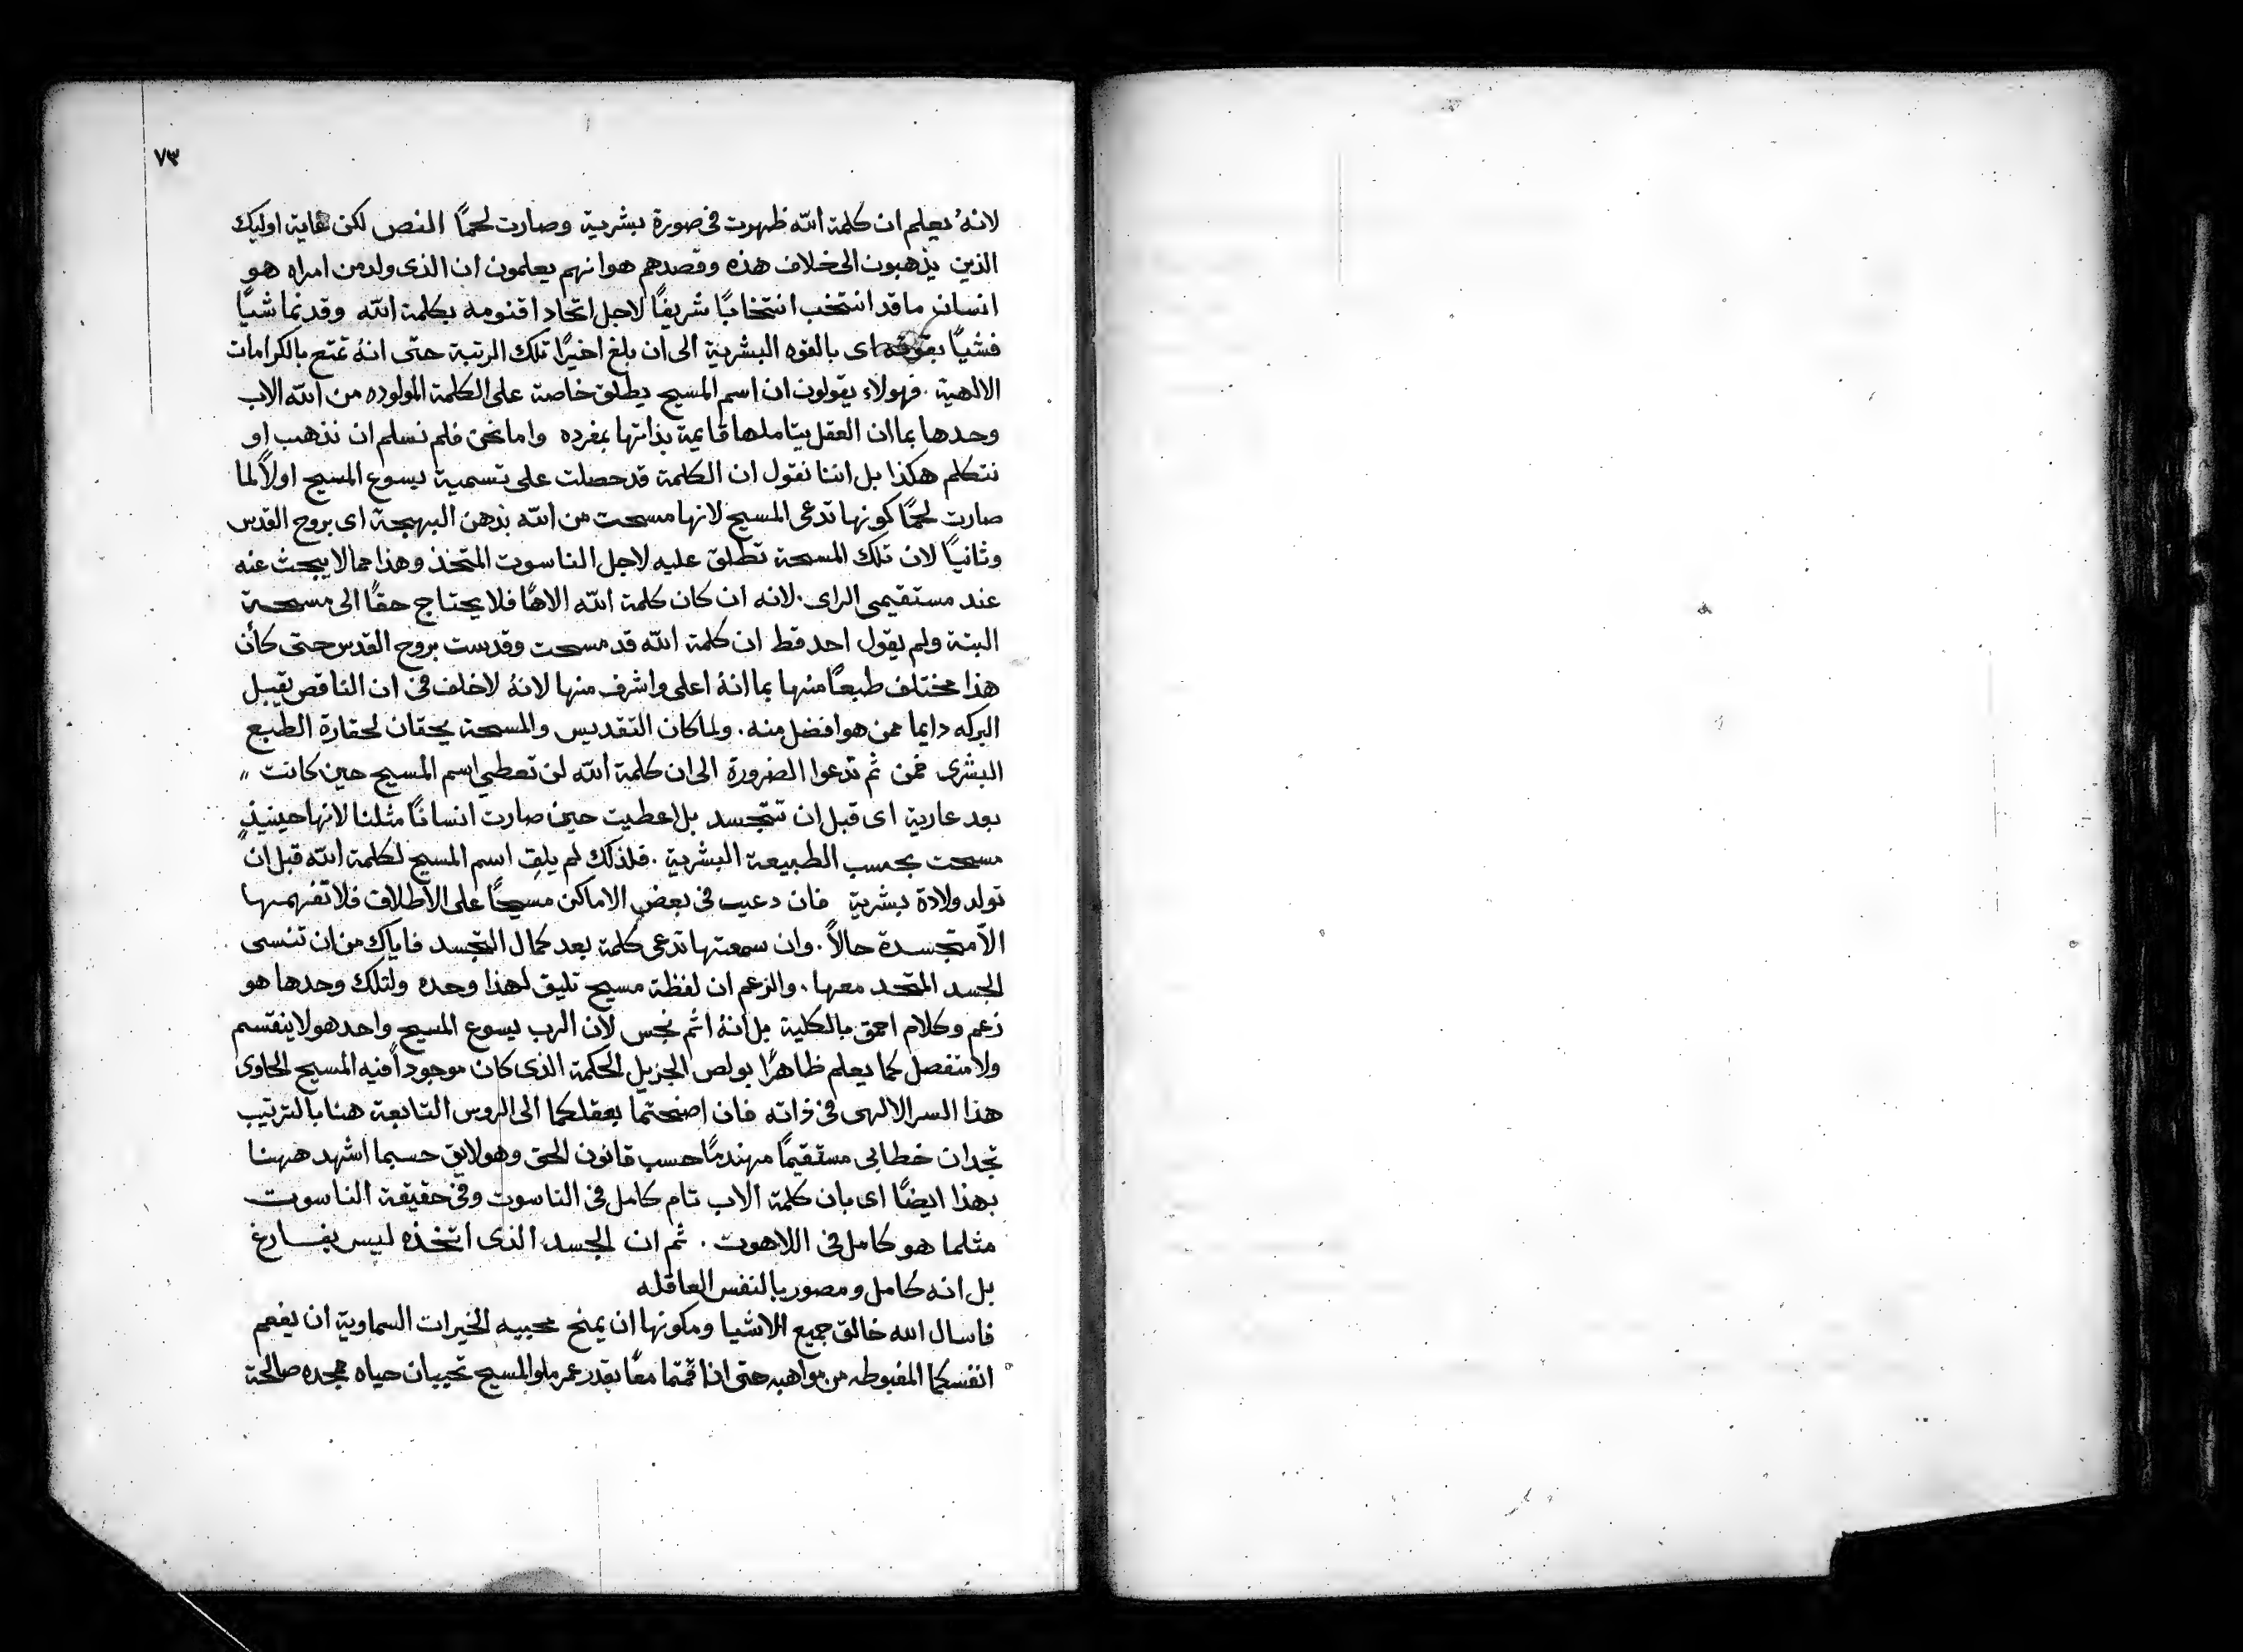 ٧٣
لانهُ يعلم ان كلمة الله ظهرت فى صورة بشرية وصارت لحمًا النص لكن غاية اوليك
الذين يذهبون الى خلاف هذه وقصدهم هو انهم يعلمون ان الذى ولد من امراه هو
انسان ما قد انتخب انتخابًا شريفًا لاجل اتحاد اقنومه بكلمة الله وقد نما شيًا
فشيًا بتوقه اى بالقوه البشرية الى ان بلغ اخيرًا تلك الرتبة حتى انهُ تمتع بالكرامات
الالهية . فهولاء يقولون ان اسم المسيح يطلق خاصة على الكلمة المولوده من الله الاب
وحدها بما ان العقل يتاملها قايمة بذاتها بمفرده واما نحن فلم نسلم ان نذهب او
نتكلم هكذا بل اننا نقول ان الكلمة قد حصلت على تسمية يسوع المسيح اولاً لما
صارت لحمًا كونها تدعى المسيح لانها مسحت من الله بدهن البهجة اى بروح القدس
وثانيًا لان تلك المسحة تطلق عليه لاجل الناسوت المتخذ وهذا مما لا يبحث عنه
عند مستقيمى الراى . لانه ان كان كلمة الله الاهًا فلا يحتاج حقًا الى مسحة
البتة ولم يقول احد قط ان كلمة الله قد مسحت وقدست بروح القدس حتى كأن
هذا مختلف طبعًا منها بما انهُ اعلى واشرف منها لانهُ لا خلف فى ان الناقص يقبل
البركه دايما ممن هو افضل منه . ولما كان التقديس والمسحة يحقان لحقارة الطبع
البشرى فمن ثم تدعوا الضرورة الى ان كلمة الله لن تعطى اسم المسيح حين كانت "
بعد عارية اى قبل ان تتجسد بل اعطيت حين صارت انسانًا مثلنا لانها حينيذٍ
مسحت بحسب الطبيعة البشرية . فلذلك لم يلق اسم المسيح لكلمة الله قبل ان
تولد ولادة بشرية فان دعيت فى بعض الاماكن مسيحًا على الاطلاق فلا تفهمها
الاّ متجسدة حالاً . وان سمعتها تدعى كلمة بعد كمال التجسد فاياك من ان تنسى
الجسد المتحد معها . والزعم ان لفظة مسيح تليق لهذا وحده ولتلك وحدها هو
زعم وكلام احمق بالكلية بل انهُ اثم نجس لان الرب يسوع المسيح واحد هو لا ينقسم
ولا متفصل كما يعلم ظاهرًا بولص الجزيل الحكمة الذى كان موجوداً فيه المسيح الحاوى
هذا السر الالهى فى ذاته فان اصختما بعقلكما الى الروس التابعة هنا بالترتيب
تجدان خطابى مستقيمًا مهندمًا حسب قانون الحق وهو لايق حسبما اشهد ههنا
بهذا ايضًا اى بان كلمة الاب تام كامل فى الناسوت وفى حقيقة الناسوت
مثلما هو كامل فى اللاهوت . ثم ان الجسد الذى اتخذه ليس بفارغ
بل انه كامل ومصور بالنفس العاقله
فاسال الله خالق جميع الاشيا ومكونها ان يمنح محبيه الخيرات السماوية ان يفعم
انفسكما المغبوطه من مواهبه حتى اذا قمتما معًا بقدر عمر ملو المسيح تحييان حياه مجده صالحة